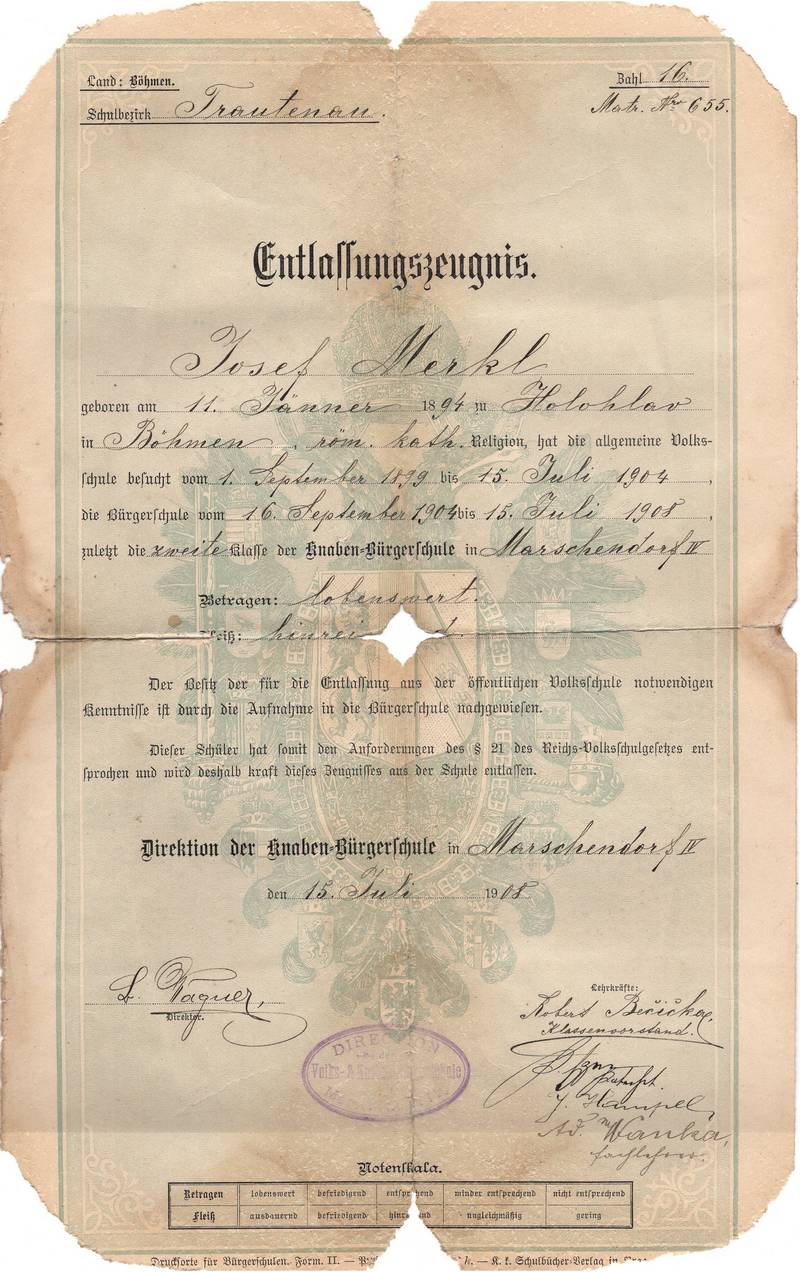 Land: Böhmen.
Zahl 16.
Schulbezirk Trautenau.
Matr. Nro 655.
Entlassungszeugnis.
Josef Merkl
geboren am 11. Jänner 1894 zu Holohlav
in Böhmen, röm. kath. Religion, hat die allgemeine Volks-
schule besucht vom 1. September 1899 bis 15. Juli 1904,
die Bürgerschule vom 16. September 1904 bis 15. Juli 1908,
zuletzt die zweite Klasse der Knaben-Bürgerschule in Marschendorf IV
Betragen: lobenswert.
Fleiß: hinrei
Der Besitz der für die Entlassung aus der öffentlichen Volksschule notwendigen
Kenntnisse ist durch die Aufnahme in die Bürgerschule nachgewiesen.
Dieser Schüler hat somit den Anforderungen des § 21 des Reichs-Volksschulgesetzes ent-
sprochen und wird deshalb kraft dieses Zeugnisses aus der Schule entlassen.
Direktion der Knaben-Bürgerschule in Marschendorf IV
den 15. Juli 1908
L. Wagner,
Direktor.
Lehrkräfte:
Robert Bečička,
Klassenvorstand.
J. Hampel,
Ad. Wanka,
Fachlehrer.
DIRECTION
Volks- &
Notenskala.
Betragen lobenswert befriedigend entsp hend minder entsprechend nicht entsprechend
Fleiß ausdauernd befriedigend hinr nd ungleichmäßig gering
Drucksorte für Bürgerschulen. Form. II. — K. k. Schulbücher-Verlag in